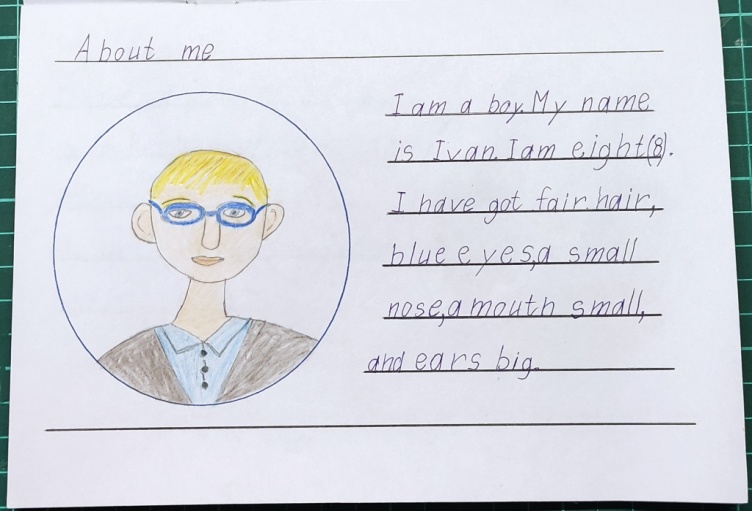 About me
I am a boy. My name
is Ivan. I am eight(8).
I have got fair hair,
blue eyes, a small
nose, a mouth small,
and ears big.